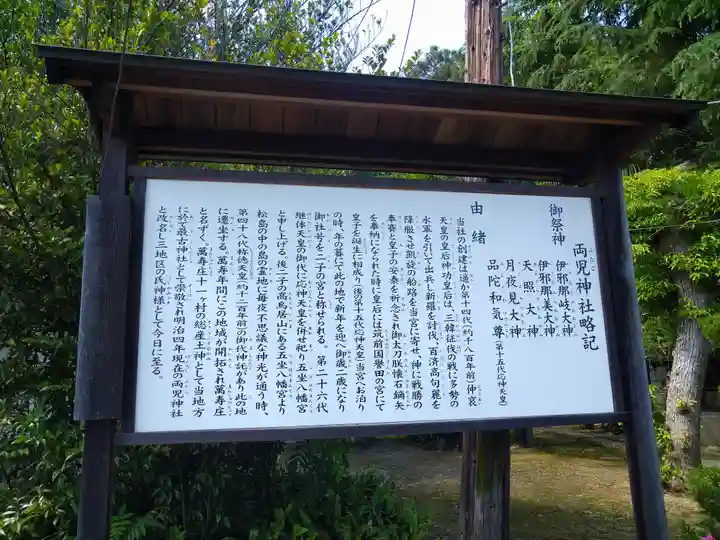 両児神社略記
ふたご
御祭神
伊邪那岐大神
伊邪那美大神
天照大神
月夜見大神
品陀和気尊(第十五代応神天皇)
由緒
当社の創建は遙か第十四代(約千八百年前)仲哀
天皇の皇后神功皇后は、三韓征伐の戦に多勢の
水軍を引いて出兵し新羅を討伐、百済高句麗を
降服させ凱旋の船路を当宮に寄せ、神に戦勝の
奉賽と皇子の安泰を祈念され御太刀朕懐石鏑矢
を奉納になられた時に皇后には筑前国誉田の宮にて
皇子を誕生に相成り(後の第十五代応神天皇)当宮へお泊り
の時、年の暮にて此の地で新年を迎へ御歳二歳になり
御社号を二子の宮と称せられる。第二十六代
継体天皇の御代に応神天皇を併せ祀り五坐八幡宮
と申し上げる。後二子の高鳥居山にある五坐八幡宮より
松島の中の島の霊地に毎夜不思議な神光が通う時、
第四十八代称徳天皇(約千二百年前)の御代神託があり此の地
に遷坐する。萬寿年間にこの地域が開拓され萬寿庄
と名ずく。萬寿庄十一ヶ村の総産土神として当地方
に於て最古神社として崇敬され明治四年現在の両児神社
と改名し三地区の氏神様として今日に至る。